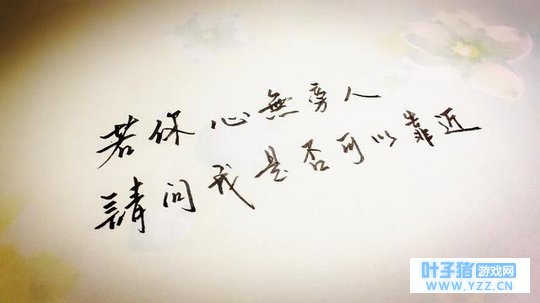 若你心無旁人
請问我是否可以靠近
叶子猪游戏网
www.YZZ.CN